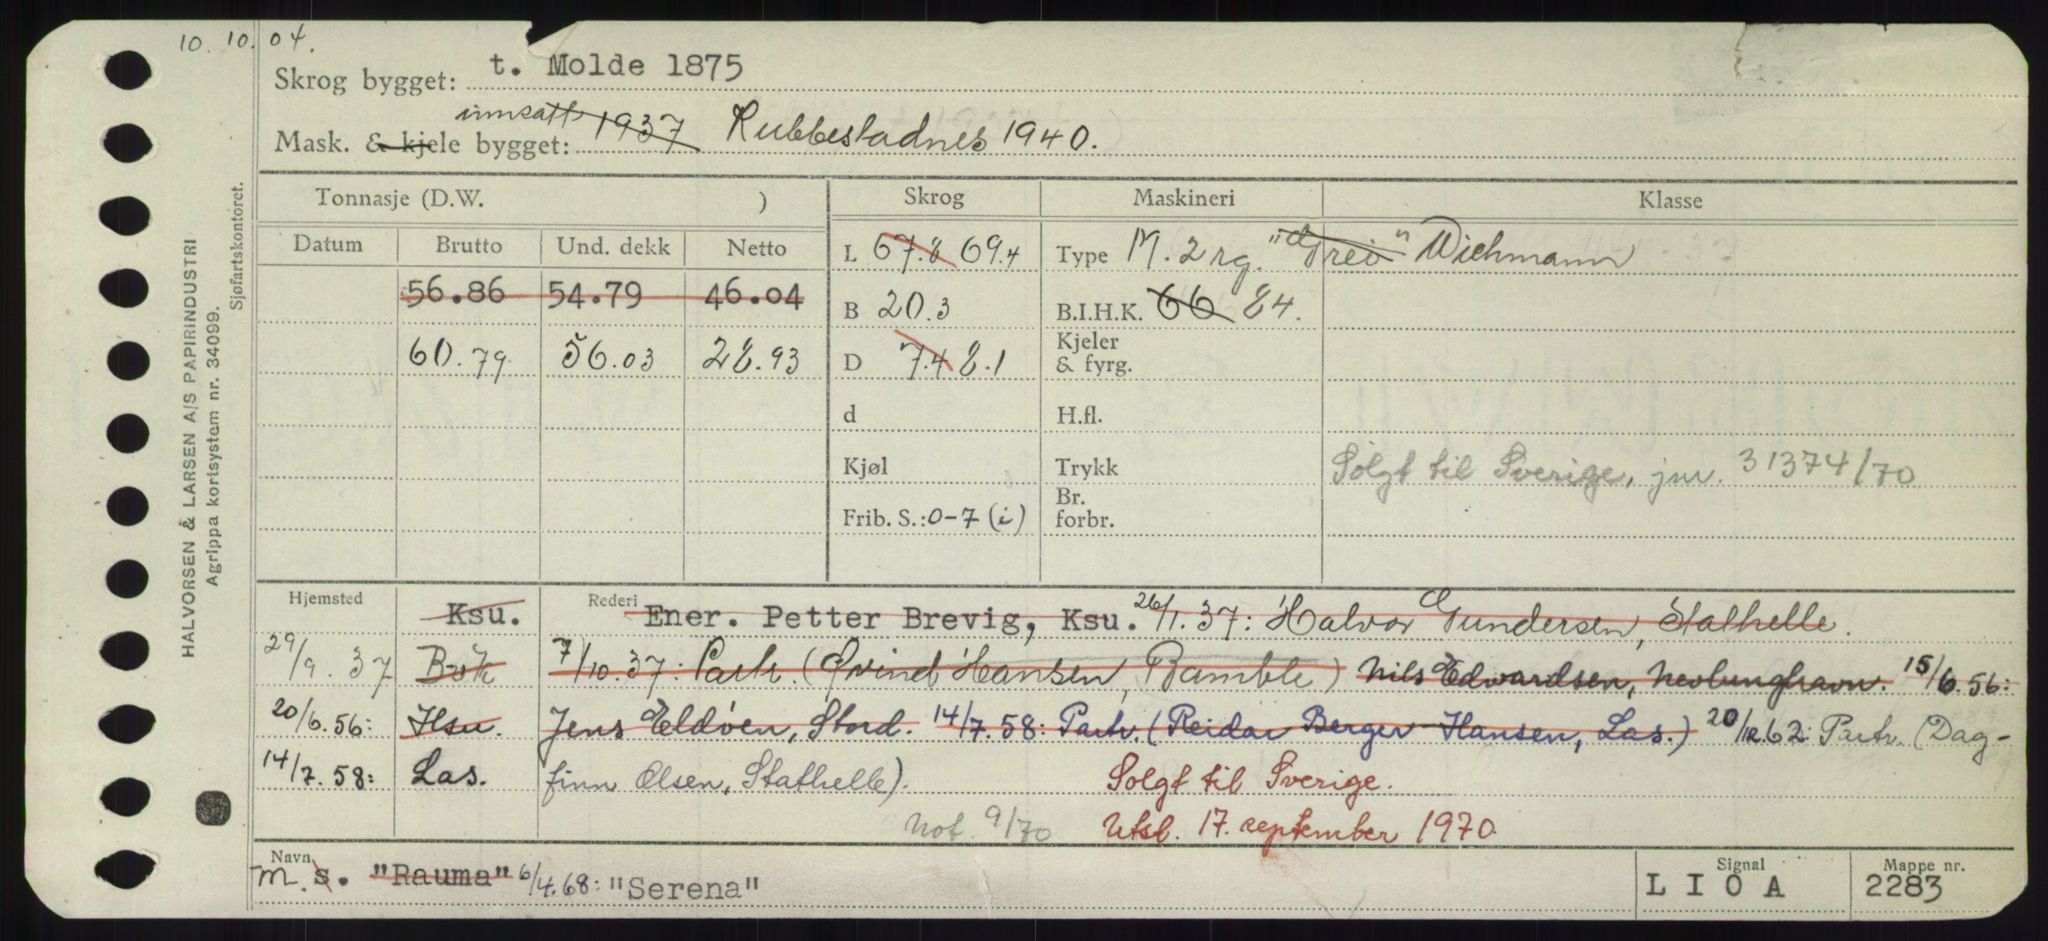 10. 10. 04.
Skrog bygget: t. Molde 1875
innsatt
Mask. & kjele bygget: 1937 Rubbestadnes 1940.
Tonnasje (D.W. ) Skrog Maskineri Klasse
Datum Brutto Und. dekk Netto L 67.8 69.4 Type M. 2 rg. "Drei" Wichmann
56.86 54.79 46.04 B 20.3 B.I.H.K. 66 84.
60.79 56.03 28.93 D 7.4 8.1 Kjeler & fyrg.
d H.fl.
Kjøl Trykk Solgt til Sverige, jnr. 31374/70
Frib. S.: 0-7 (i) Br. forbr.
Hjemsted Ksu. Rederi Ener. Petter Brevig, Ksu. 26/1.37: Halvor Gundersen, Stathelle.
29/9.37 Brk 7/10.37: Partr. (Øvind Hansen, Bamble) Nils Edwardsen, Nevlunghavn. 15/6.56:
20/6.56: Hsu. Jens Eldøen, Stord. 14/7.58: Partr. (Reidar Berger Hansen, Las.) 20/12 62: Partr. (Dag-
14/7.58: Las. finn Olsen, Stathelle). Solgt til Sverige.
Not. 9/70 Utsl. 17. september 1970.
Navn Signal Mappe nr.
m. s. "Rauma" 6/4.68: "Serena" L I O A 2283
HALVORSEN & LARSEN A/S PAPIRINDUSTRI
Agrippa kortsystem nr. 34099.
Sjøfartskontoret.